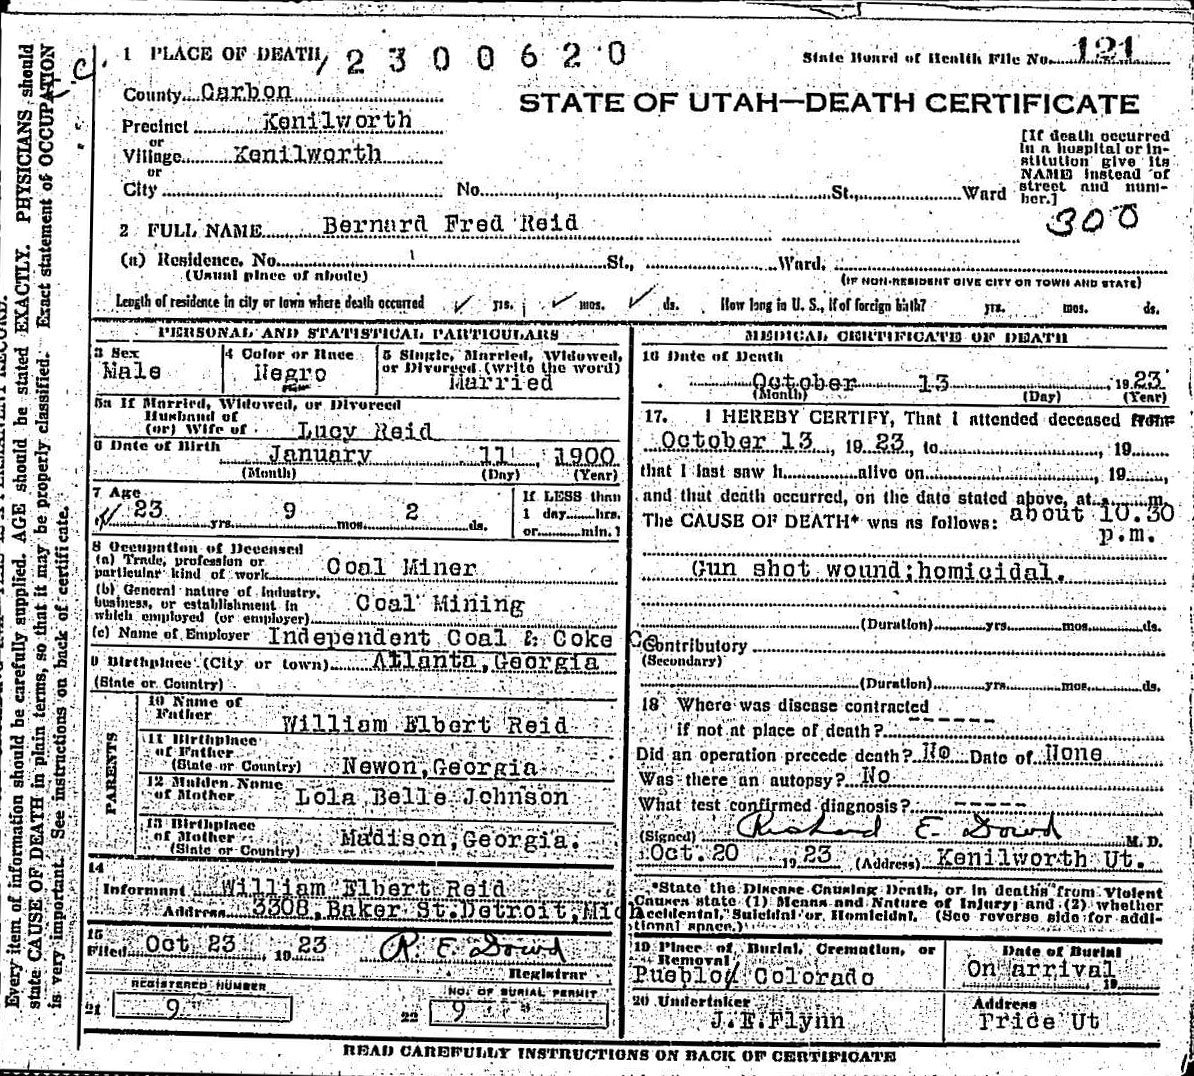 1 PLACE OF DEATH, 2300620
State Board of Health File No. 121
County Carbon
STATE OF UTAH—DEATH CERTIFICATE
Precinct Kenilworth
or
Village Kenilworth
or
City No. St., Ward
[If death occurred
in a hospital or in-
stitution give its
NAME instead of
street and num-
ber.]
300
2 FULL NAME Bernard Fred Reid
(a) Residence. No. St., Ward.
(Usual place of abode)
(IF NON-RESIDENT GIVE CITY OR TOWN AND STATE)
Length of residence in city or town where death occurred ✓ yrs. ✓ mos. ✓ ds. How long in U. S., if of foreign birth? yrs. mos. ds.
PERSONAL AND STATISTICAL PARTICULARS
3 Sex
Male
4 Color or Race
Negro
5 Single, Married, Widowed,
or Divorced (write the word)
Married
5a If Married, Widowed, or Divorced
Husband of
(or) Wife of Lucy Reid
6 Date of Birth
January 11 1900
(Month) (Day) (Year)
7 Age
23 yrs. 9 mos. 2 ds.
If LESS than
1 day hrs.
or min.
8 Occupation of Deceased
(a) Trade, profession or
particular kind of work Coal Miner
(b) General nature of Industry,
business, or establishment in
which employed (or employer) Coal Mining
(c) Name of Employer Independent Coal & Coke Co
9 Birthplace (City or town) Atlanta, Georgia
(State or Country)
PARENTS
10 Name of
Father William Elbert Reid
11 Birthplace
of Father
(State or Country) Newon, Georgia
12 Maiden Name
of Mother Lola Belle Johnson
13 Birthplace
of Mother
(State or Country) Madison, Georgia.
14
Informant William Elbert Reid
Address 3308, Baker St. Detroit, Mic
15
Filed Oct 23 1923 R. E. Dowd
Registrar
REGISTERED NUMBER
21 9
NO. OF BURIAL PERMIT
22 9
MEDICAL CERTIFICATE OF DEATH
16 Date of Death
October 13 1923
(Month) (Day) (Year)
17. I HEREBY CERTIFY, That I attended deceased from
October 13, 1923, to , 19
that I last saw h alive on , 19
and that death occurred, on the date stated above, at m
The CAUSE OF DEATH* was as follows: about 10.30
p.m.
Gun shot wound; homicidal.
(Duration) yrs. mos. ds.
Contributory
(Secondary)
(Duration) yrs. mos. ds.
18 Where was disease contracted
if not at place of death? ------
Did an operation precede death? No Date of None
Was there an autopsy? No
What test confirmed diagnosis? -----
(Signed) Richard E. Dowd M. D.
Oct. 20 1923 (Address) Kenilworth Ut.
*State the Disease Causing Death, or in deaths from Violent
Causes state (1) Means and Nature of Injury; and (2) whether
Accidental, Suicidal or Homicidal. (See reverse side for addi-
tional space.)
19 Place of Burial, Cremation, or
Removal
Pueblo, Colorado
Date of Burial
On arrival
19
20 Undertaker
J.E.Flynn
Address
Price Ut
READ CAREFULLY INSTRUCTIONS ON BACK OF CERTIFICATE
Every item of information should be carefully supplied. AGE should be stated EXACTLY. PHYSICIANS should
state CAUSE OF DEATH in plain terms, so that it may be properly classified. Exact statement of OCCUPATION
is very important. See instructions on back of certificate.